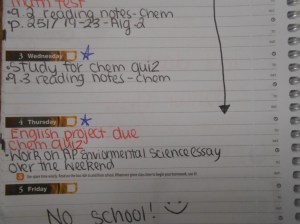 math test
• 9.2 reading notes - chem
• p. 251/ 19-23 - Alg 2
3 Wednesday
• Study for chem quiz
• 9.3 reading notes - chem
4 Thursday
English project due
chem quiz
• Work on AP Enviormental Science essay
over the weekend
5 Friday
No school!